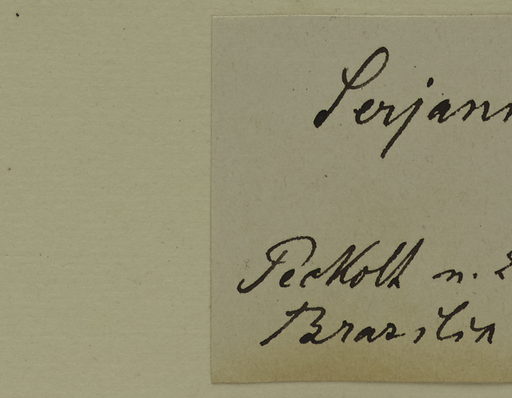 Serjan
Peckolt n. 2
Brasilia